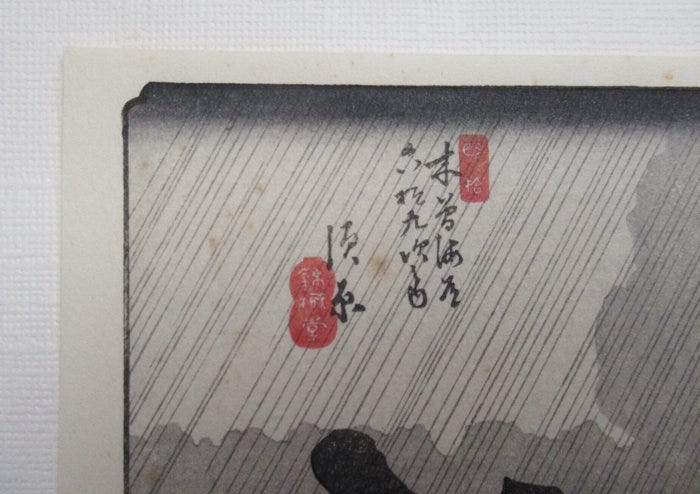 四拾
木曾海道
六拾九次之内
須原
錦樹堂